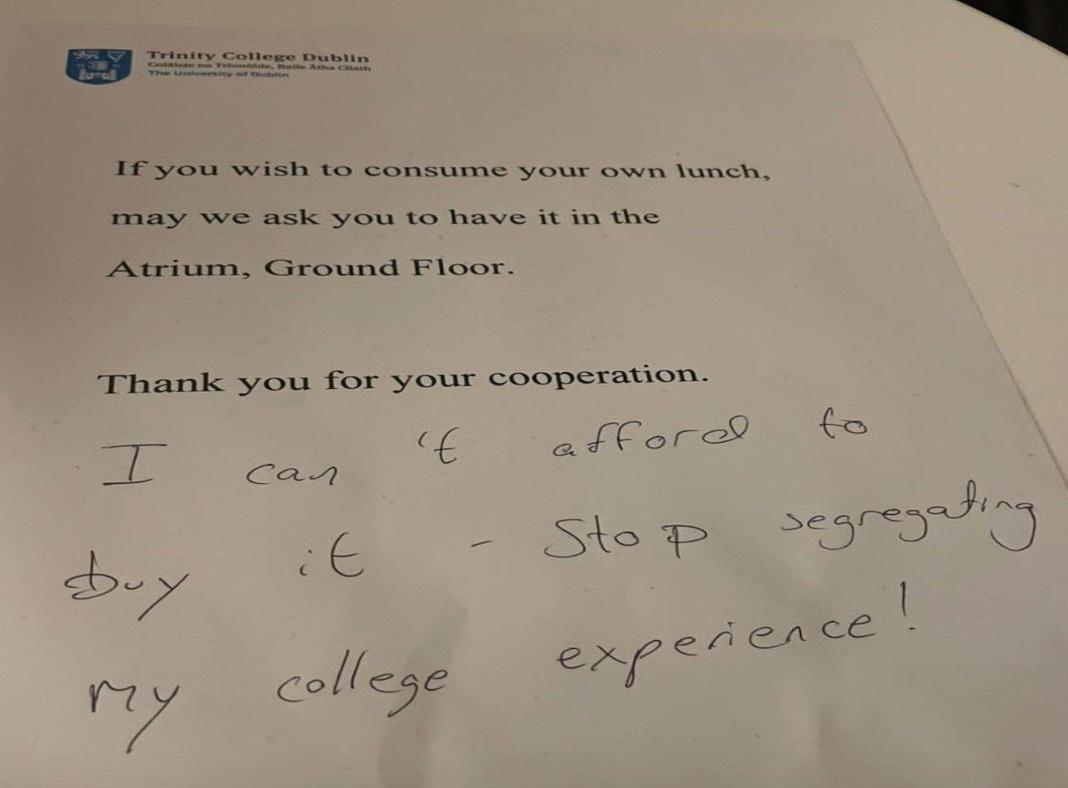 Trinity College Dublin
Coláiste na Tríonóide, Baile Átha Cliath
The University of Dublin
If you wish to consume your own lunch,
may we ask you to have it in the
Atrium, Ground Floor.
Thank you for your cooperation.
I can't afford to
buy it - Stop segregating
my college experience!